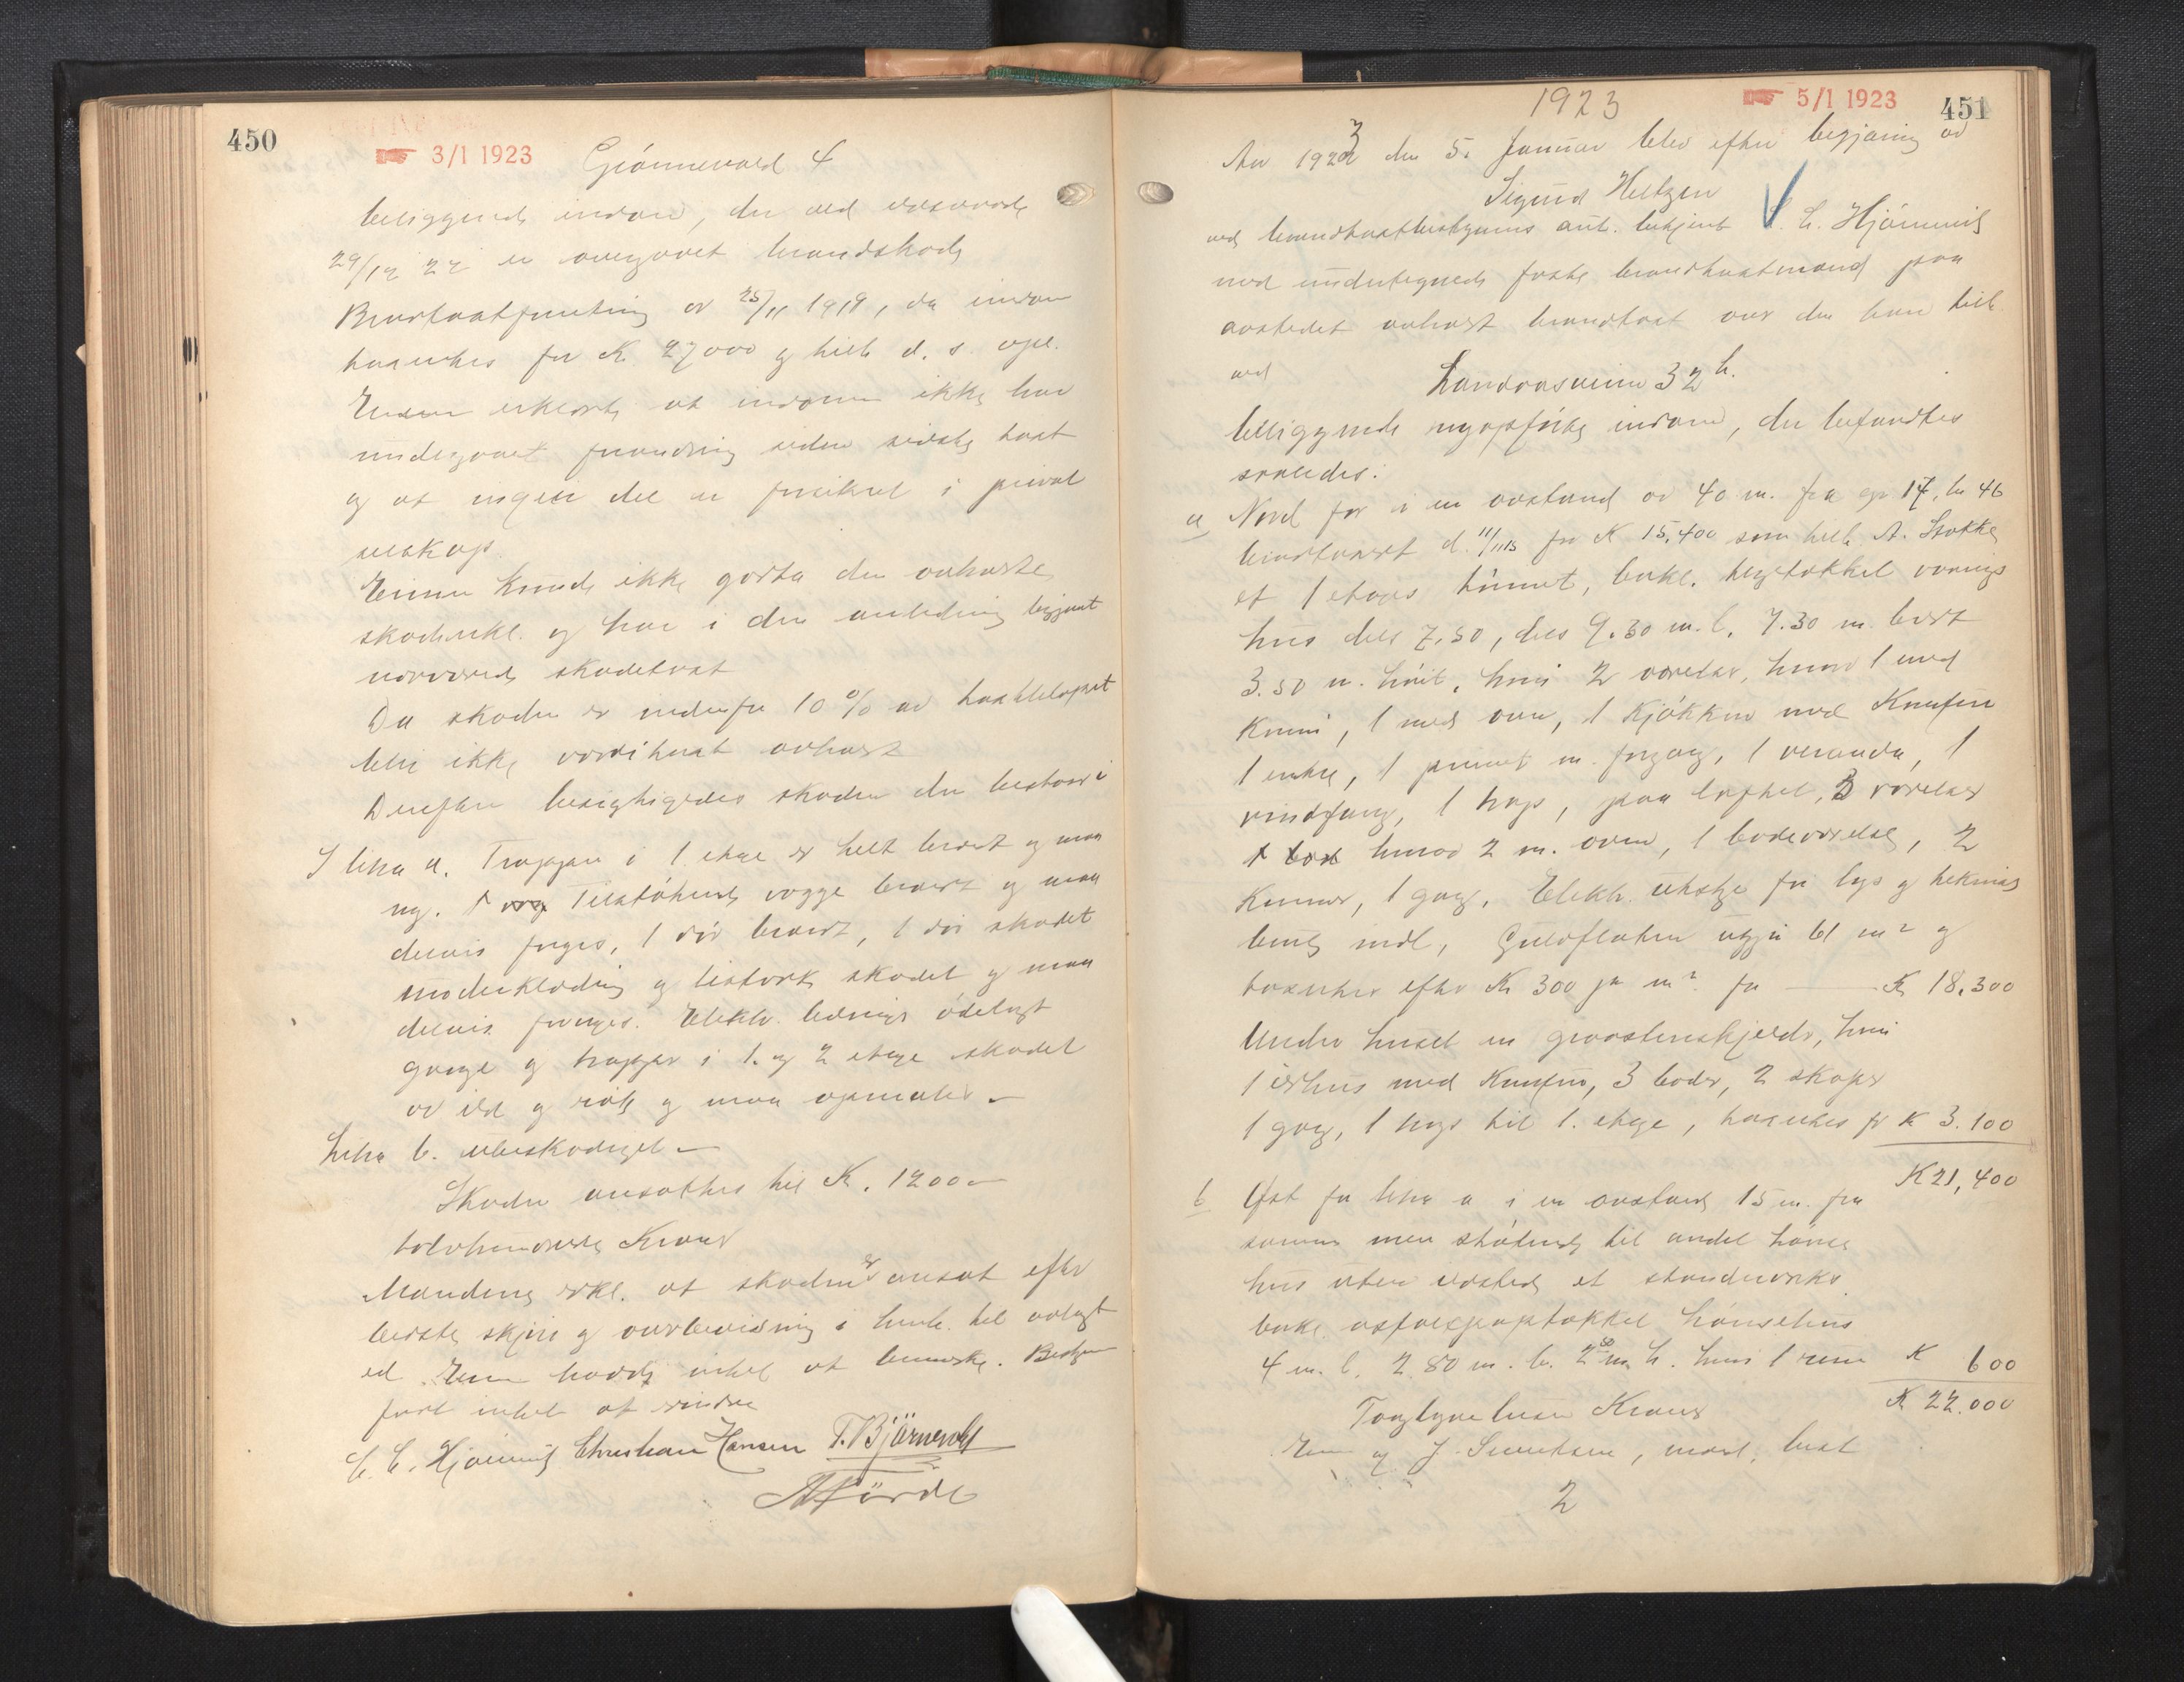 450
3/1 1923
Grönnevold 4
beliggende eiendom, der ved ildsvaade
29/12 22 er overgaaet brandskade
Brandtaxtforretning er 25/11 1918, da eiendom
taxertes for K 27000 og tilh. d. s. opl.
Eieren erklærte at eiendommen ikke har
undergaaet forandring siden sidste taxt
og at ingen del er forsikret i privat
selskap.
Eieren kunde ikke godta den avholdte
skadeerkl. og har i den anledning begjært
nærværende skadetaxt
Da skaden er under 10 % av taxtbeløpet
blev ikke værditaxt avholdt
Derefter besigtigedes skaden der bestaar i
I litra a. Trappen i 1 etage er helt brændt og maa
ny. Tilstötende vægge brændt og maa
delvis fornyes, 1 dör brændt, 1 dör skadet
underklædning og listverk skadet og maa
delvis fornyes. Elektr. ledninger ödelagt
gange og trapper i 1. og 2 etage skadet
av ild og rök og maa opmales –
Litra b. ubeskadiget –
Skaden ansattes til K. 1200 –
tolvhundrede Kroner
Mændene erkl. at skaden er ansat efter
bedste skjön og overbevisning i henh. til avlagt
ed. Eieren havde intet at bemerke. Bestyreren
fandt intet at erindre
C. C. Hjönnevig Christian Hansen T. Björnevold
A Förde
1923
5/1 1923
451
Aar 1923 den 5. Januar blev efter begjæring av
Sigurd Heltzen
ved brandtaxtbestyrerens aut. betjent C. C. Hjönnevig
med undertegnede faste brandtaxtmænd paa
aastedet avholdt brandtaxt over den ham tilh.
ved
Landaasveien 32 b.
beliggende nyopförte eiendom, der befandtes
saaledes:
a Nord for i en avstand av 40 m. fra gr 17, br 46
brandtaxert d. 11/11 15 for K 15,400 som tilh. A. Stokke
et 1 etages tömret, bakl. teglstækket vaanings
hus dels 7.50, dels 9.30 m. l. 7.30 m. bredt
3.50 m. höit, hvori 2 værelser, hvorav 1 med
Kamin, 1 med ovn, 1 kjökken med Komfur
1 entre, 1 privet m. forgang, 1 veranda, 1
vindfang, 1 trap, paa loftet, 3 værelser
hvorav 2 m. ovn, 1 badeværelse, 2
Kammer, 1 gang. Elektr. utstyr for lys og tekniske
bruk indl. Gulvflaten utgjör 61 m² og
taxertes efter K 300 pr m². for K 18.300
Under huset en graastenskjelder, hvori
1 ildhus med Komfur, 3 boder, 2 skaper
1 gang, 1 trap til 1. etage, taxertes for K 3.100
K 21,400
b Öst for litra a i en avstand 15 m. fra
samme men stötende til andet hönse
hus uten ildsted et standverks
bakl. asfaltpaptækket hönsehus
4 m. l. 2.80 m. b. 2 50 m h. hvori 1 rum K 600
K 22.000
Toogtyvetusen Kroner
Eieren og J. Svendsen, mask. best
2